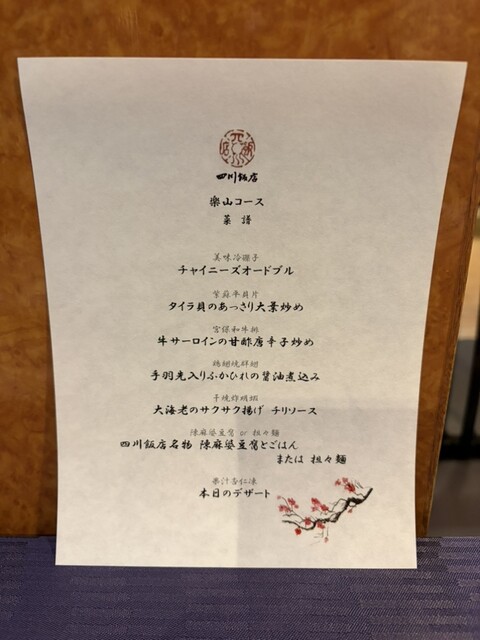 四川飯店
楽山コース
菜譜
美味冷碟子
チャイニーズオードブル
紫蘇平貝片
タイラ貝のあっさり大葉炒め
宮保和牛排
牛サーロインの甘酢唐辛子炒め
鶏翅焼群翅
手羽先入りふかひれの醤油煮込み
干焼炸明蝦
大海老のサクサク揚げ チリソース
陳麻婆豆腐 or 担々麺
四川飯店名物 陳麻婆豆腐とごはん
または 担々麺
果汁杏仁凍
本日のデザート